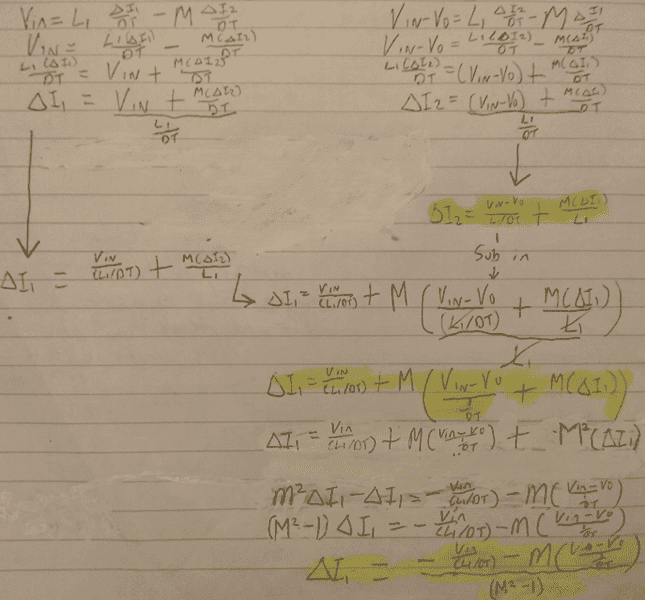 VIN = L1 ΔI1/DT - M ΔI2/DT
VIN = L1(ΔI1)/DT - M(ΔI2)/DT
L1(ΔI1)/DT = VIN + M(ΔI2)/DT
ΔI1 = (VIN + M(ΔI2)/DT) / (L1/DT)
VIN-VO = L1 ΔI2/DT - M ΔI1/DT
VIN-VO = L1(ΔI2)/DT - M(ΔI1)/DT
L1(ΔI2)/DT = (VIN-VO) + M(ΔI1)/DT
ΔI2 = ((VIN-VO) + M(ΔI1)/DT) / (L1/DT)
ΔI2 = VIN-VO/(L1/DT) + M(ΔI1)/L1
Sub in
ΔI1 = VIN/(L1/DT) + M(ΔI2)/L1
ΔI1 = VIN/(L1/DT) + M((VIN-VO)/(L1/DT) + M(ΔI1)/L1) / L1
ΔI1 = VIN/(L1/DT) + M((VIN-VO)/(1/DT) + M(ΔI1))
ΔI1 = VIN/(L1/DT) + M((VIN-VO)/(1/DT)) + M²(ΔI1)
M²ΔI1 - ΔI1 = -VIN/(L1/DT) - M((VIN-VO)/(1/DT))
(M²-1)ΔI1 = -VIN/(L1/DT) - M((VIN-VO)/(1/DT))
ΔI1 = (-VIN/(L1/DT) - M((VIN-VO)/(1/DT))) / (M²-1)